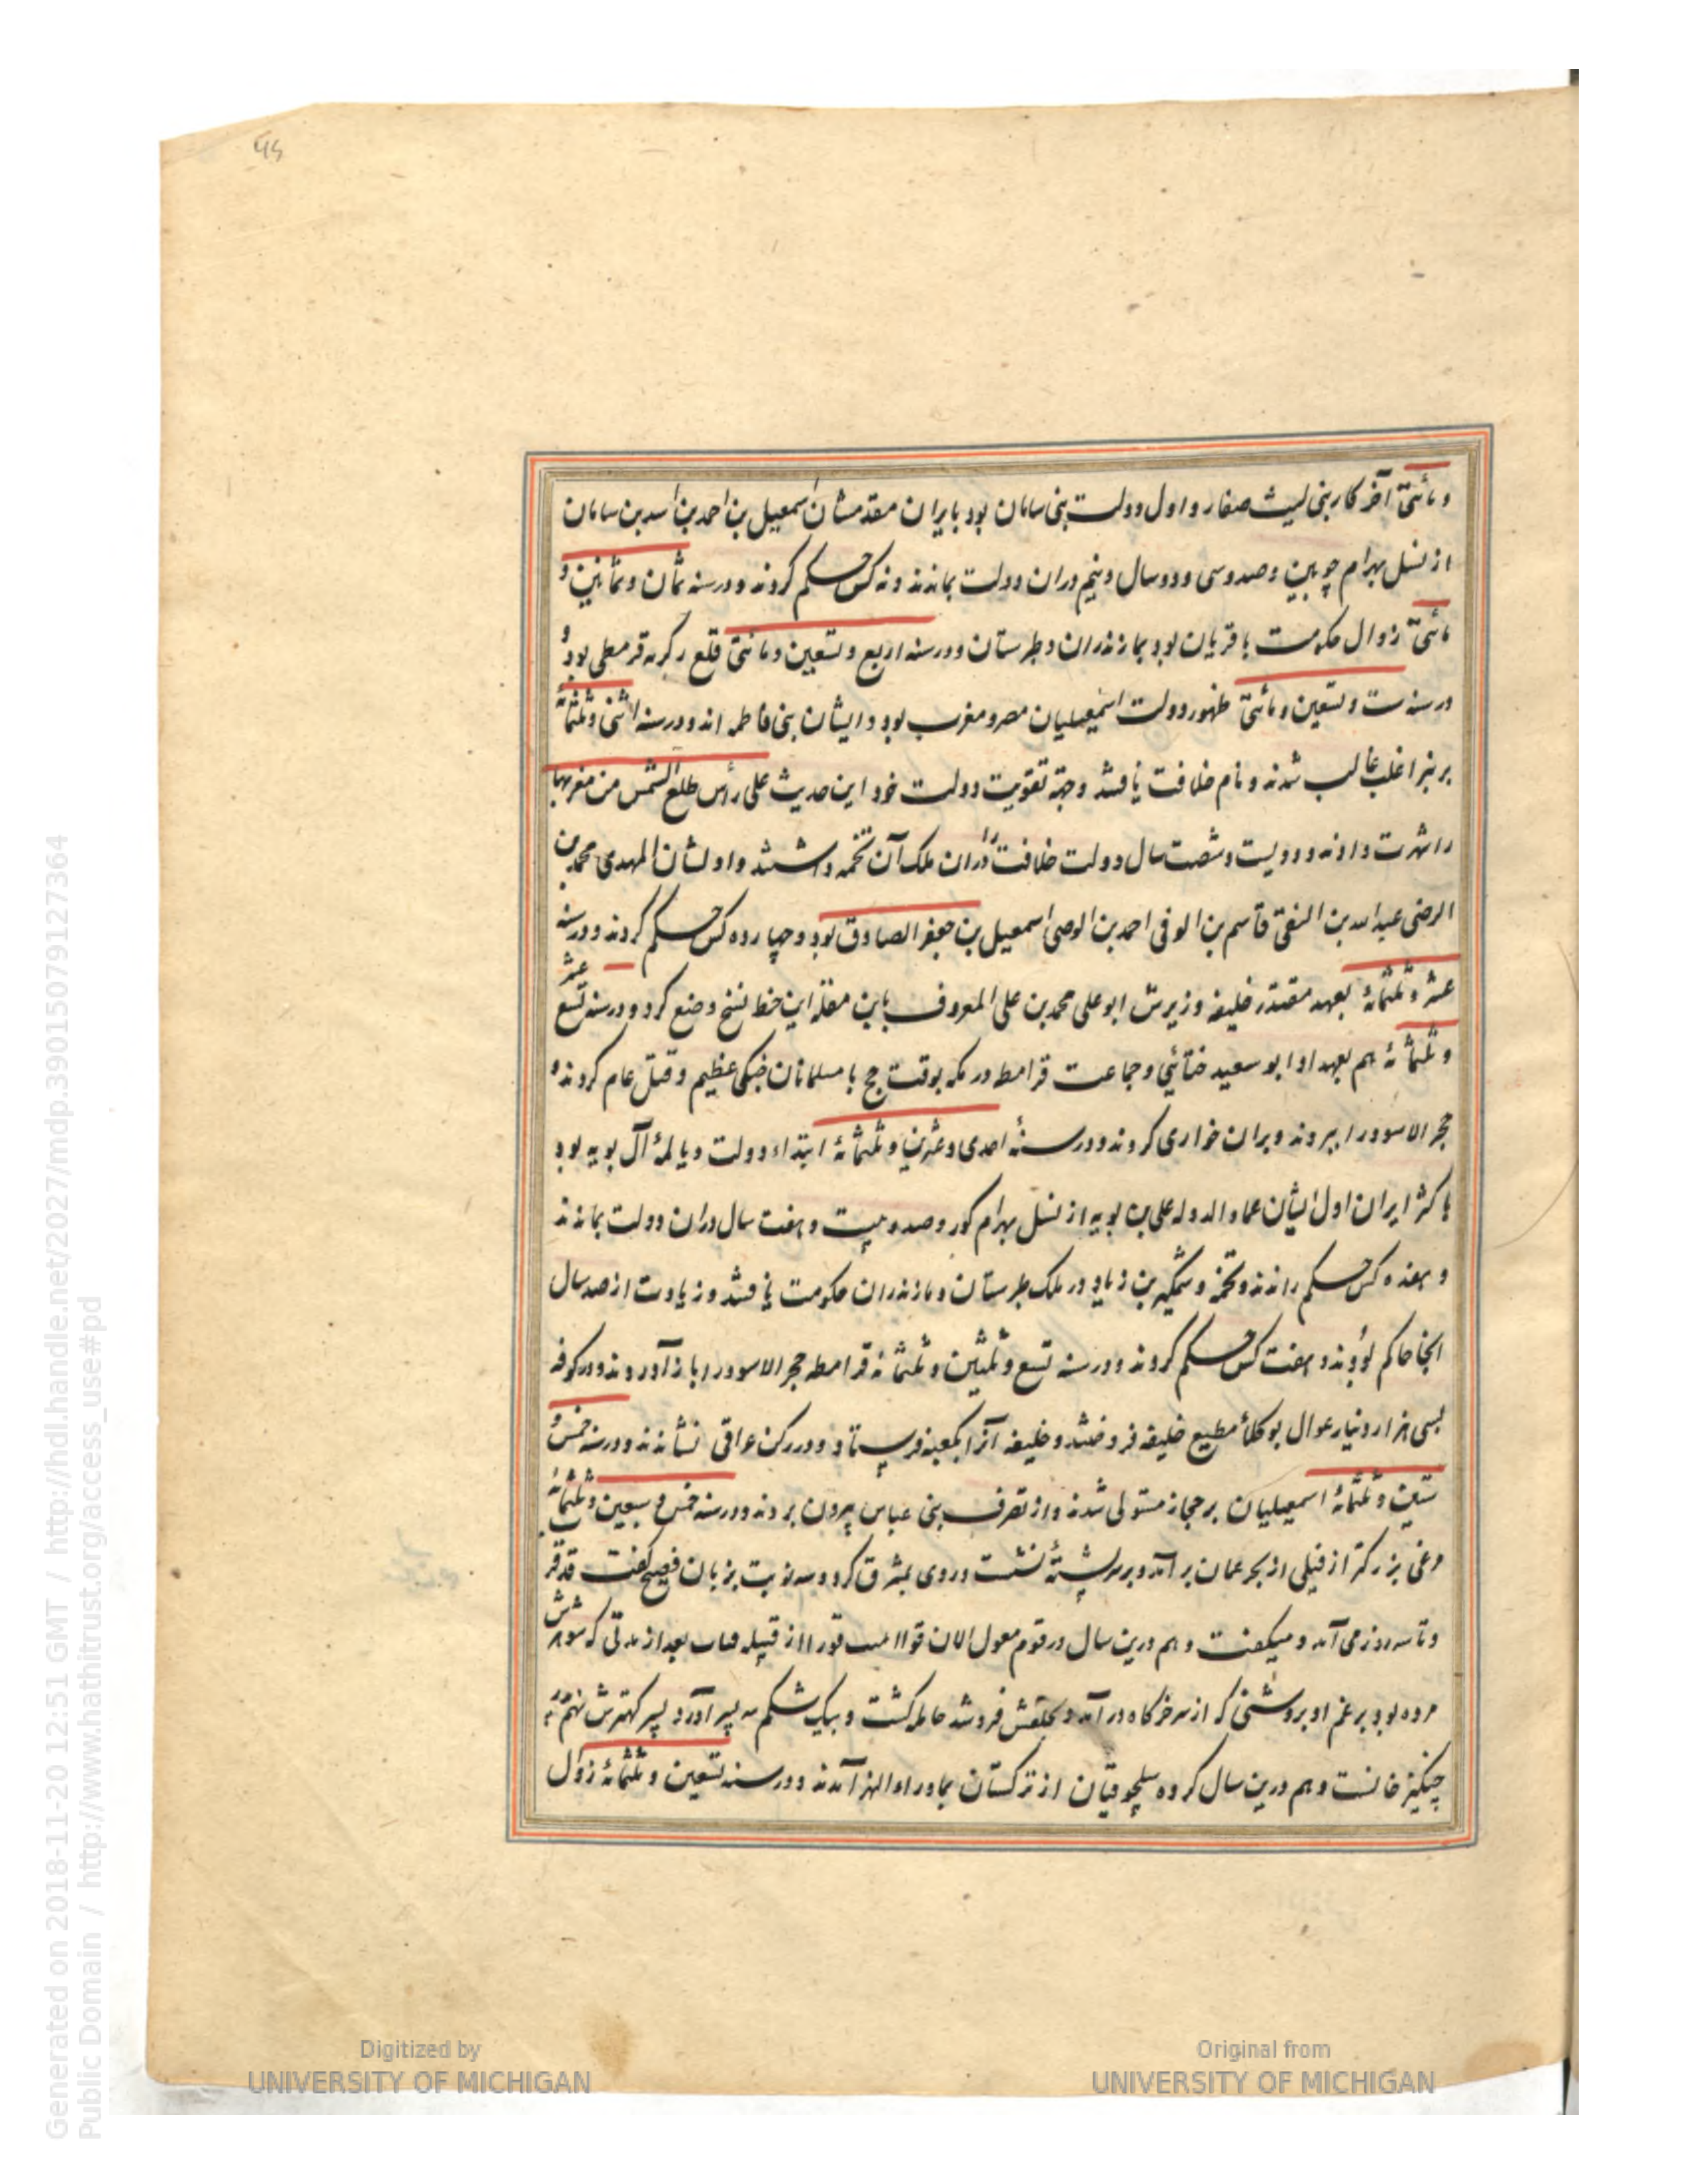 ۹۵
و مائتی آخر کار بنی لیث صفار و اول دولت بنی سامان بود بایران مقدمشان اسمعیل بن احمد بن اسد بن سامان
از نسل بهرام چوبین و صد و سی و دو سال و نیم دران دولت بماندند و نه کس حکم کردند و در سنه ثمان و ثمانین و
مائتی زوال حکومت باقریان بود بمازندران و طبرستان و در سنه اربع و تسعین و مائتی قلع زکریه قرمطی بود و
در سنه ست و تسعین و مائتی ظهور دولت اسمعیلیان مصر و مغرب بود و ایشان بنی فاطمه اند و در سنه اثنی و ثلثمائه
بر اغلب غالب شدند و نام خلافت یافتند و جهة تقویت دولت خود این حدیث علی رأس طلع الشمس من مغربها
را شهرت دادند و دویست و شصت سال دولت خلافت دران ملک آن تخمه داشتند و اولشان المهدی محمد بن
الرضی عبدالله بن التقی قاسم بن الوفی احمد بن الوصی اسمعیل بن جعفر الصادق بود و چهارده کس حکم کردند و در سنه
عشر و ثلثمائه بعهد مقتدر خلیفه وزیرش ابو علی محمد بن علی المعروف بابن مقله این خط نسخ وضع کرد و در سنه تسع عشر
و ثلثمائه هم بعهد او ابو سعید ختائی و جماعت قرامطه در مکه بوقت حج با مسلمانان جنکی عظیم و قتل عام کردند و
حجر الاسود را ببردند و بران خواری کردند و در سنهٔ احدی و عشرین و ثلثمائه ابتداء دولت دیالمهٔ آل بویه بود
باکثر ایران اول ایشان عماد الدوله علی بن بویه از نسل بهرام کور و صد و بیست و هفت سال دران دولت بماندند
و هفده کس حکم راندند و تخمهٔ وشمکیر بن زیاد در ملک طبرستان و مازندران حکومت یافتند و زیادت از صد سال
انجا حاکم بودند و هفت کس حکم کردند و در سنه تسع و ثلثین و ثلثمائه قرامطه حجر الاسود را باز آوردند و در کوفه
بسی هزار دینار عوال بوکلاء مطیع خلیفه فروختند و خلیفه آنرا بکعبه فرستاد و در رکن عراقی نشاندند و در سنه خمس و
ستین و ثلثمائه اسمعیلیان بر حجاز مستولی شدند و از تصرف بنی عباس بیرون بردند و در سنه خمس و سبعین و ثلثمائه
مرغی بزرکتر از فیلی از بحر عمان بر آمد و بر سر پشتهٔ نشست و روی بمشرق کرد و سه نوبت بزبان فصیح کفت قد قرب
و تا سه روز می آمد و میکفت و هم درین سال در قوم مغول الان قوا از قبیله بعد از مدتی که شوهرش
مرده بود بر عم او بروشنی که از سر خرکاه در آمد و بحلقش فرو شد حامله کشت و بیک شکم سه پسر آورد پسر کهترش نهم پدر
چنکیز خانست و هم درین سال کروه سلجوقیان از ترکستان بماوراء النهر آمدند و در سنه تسعین و ثلثمائه زوال
Digitized by
UNIVERSITY OF MICHIGAN
Original from
UNIVERSITY OF MICHIGAN
Generated on 2018-11-20 12:51 GMT / http://hdl.handle.net/2027/mdp.39015079127364
Public Domain / http://www.hathitrust.org/access_use#pd